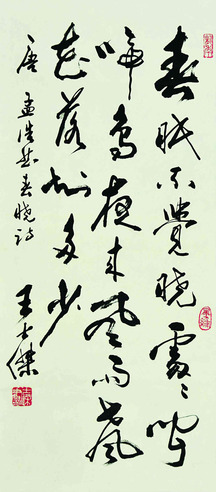 春眠不覺曉處〻聞
啼鳥夜来風雨聲
花落知多少
唐孟浩然春曉詩
王士傑